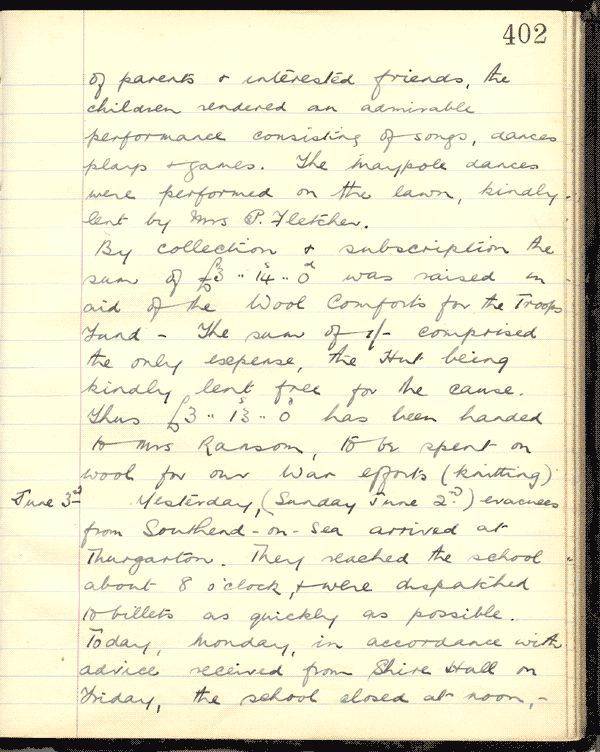 402
of parents & interested friends, the
children rendered an admirable
performance consisting of songs, dances
plays & games. The maypole dances
were performed on the lawn, kindly
lent by Mrs P. Fletcher.
By collection & subscription the
sum of £3 .. 14s .. 0d was raised in
aid of the Wool Comforts for the Troops
Fund - The sum of 1/- comprised
the only expense, the Hut being
kindly lent free for the cause.
Thus £3 .. 13s .. 0d has been handed
to Mrs Ransom, to be spent on
wool for our war efforts (knitting)
June 3rd Yesterday, (Sunday June 2nd) evacuees
from Southend-on-Sea arrived at
Thurgarton. They reached the school
about 8 o'clock, & were dispatched
to billets as quickly as possible.
Today, Monday, in accordance with
advice received from Shire Hall on
Friday, the school closed at noon, -